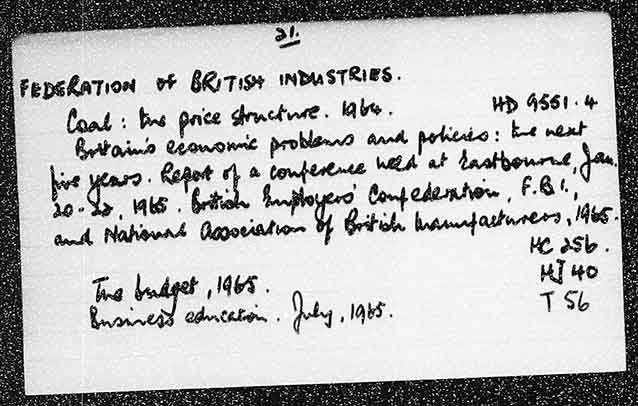 21.
FEDERATION OF BRITISH INDUSTRIES.
Coal : the price structure. 1964. HD 9551.4
Britain's economic problems and policies: the next
five years. Report of a conference held at Eastbourne, Jan.
20-22, 1965. British Employers' Confederation, F.B.I.,
and National Association of British Manufacturers, 1965.
HC 256.
The budget, 1965. HJ 40
Business education. July, 1965. T 56